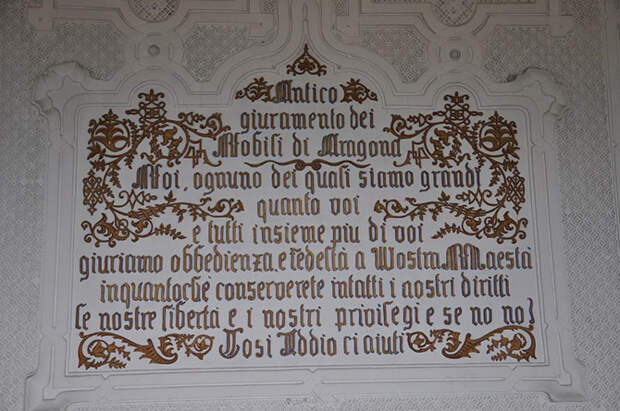 Antico
giuramento dei
Nobili di Aragona
Noi, ognuno dei quali siamo grandi
quanto voi
e tutti insieme piu di voi
giuriamo obbedienza, e fedeltà a Vostra Maestà
inquantochè conserverete intatti i nostri diritti
le nostre libertà e i nostri privilegi e se no no!
Cosi Iddio ci aiuti